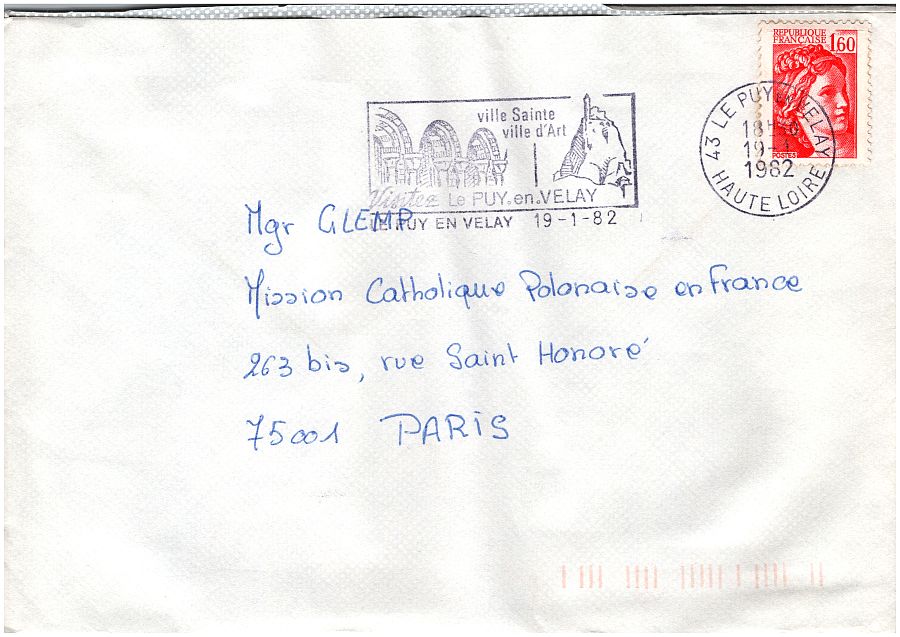 REPUBLIQUE
FRANÇAISE 1,60
POSTES
ville Sainte
ville d'Art
Visitez Le PUY.en.VELAY
LE PUY EN VELAY 19-1-82
43 LE PUY VELAY
18H
19-1
1982
HAUTE LOIRE
Mgr GLEMP
Mission Catholique Polonaise en France
263 bis, rue Saint Honoré
75001 PARIS